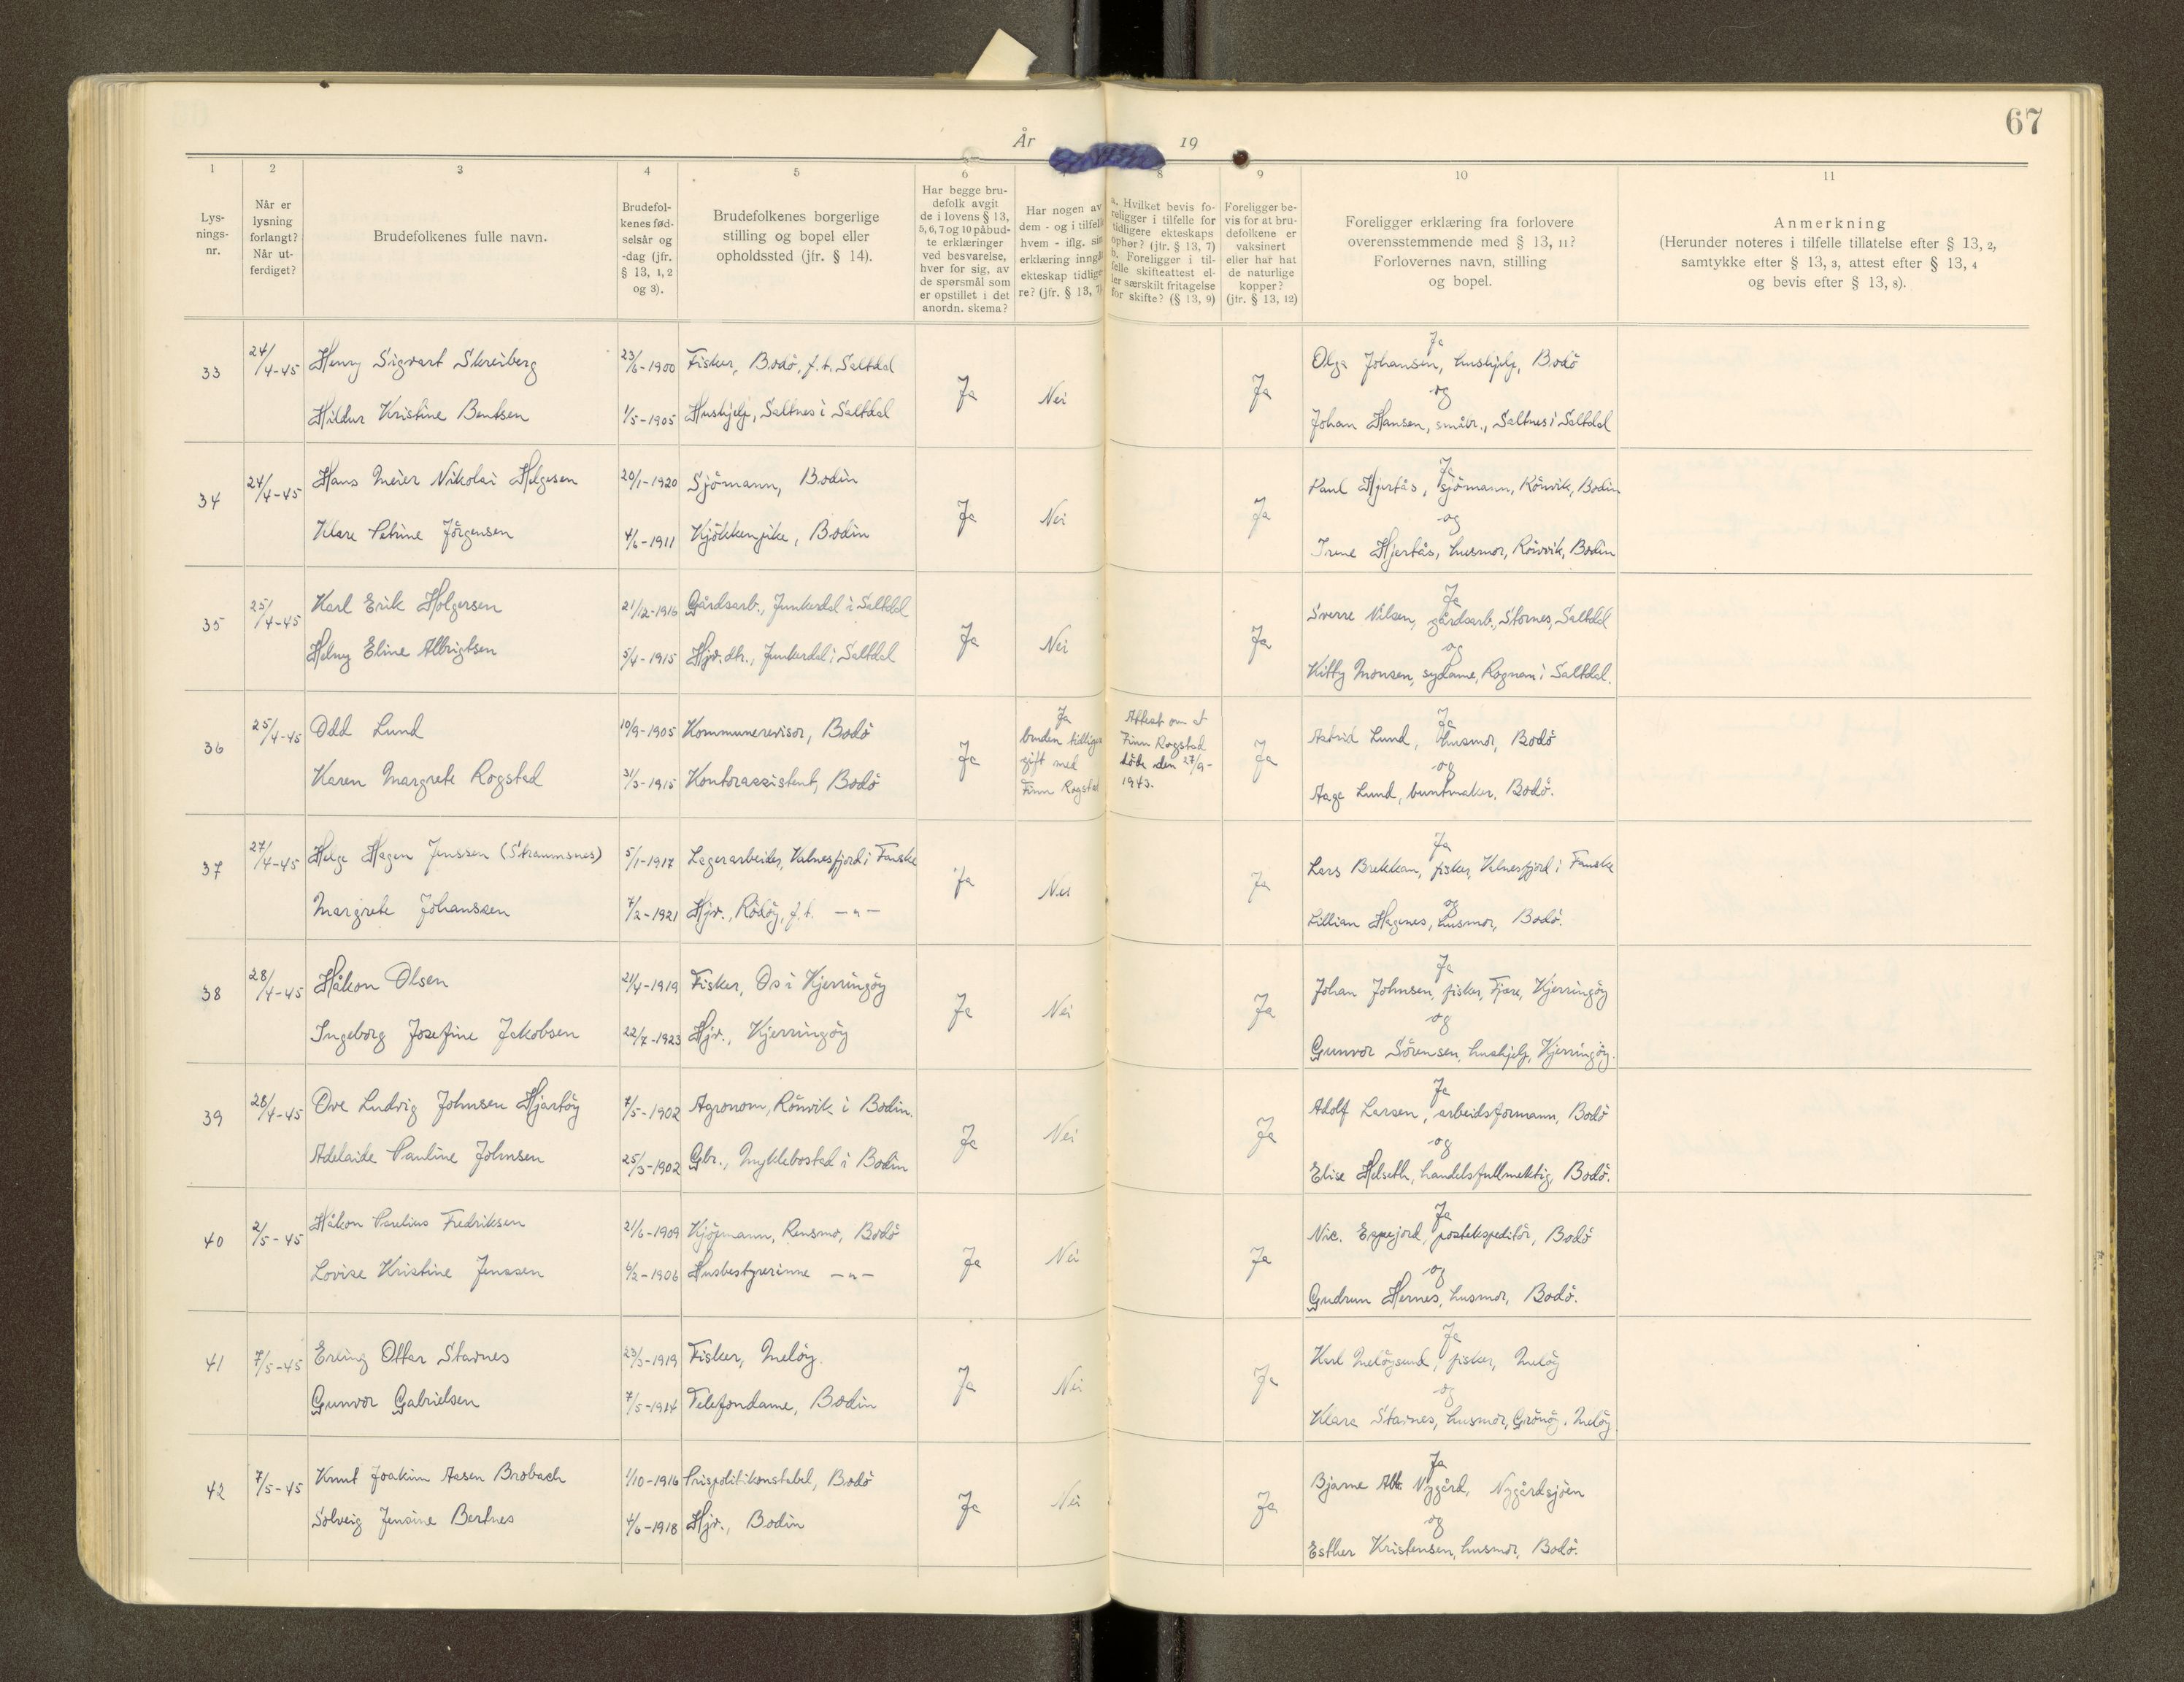 67
År 19
1 2 3 4 5 6 8 9 10 11
Lys-
nings-
nr.
Når er
lysning
forlangt?
Når ut-
ferdiget?
Brudefolkenes fulle navn.
Brudefol-
kenes fød-
selsår og
-dag (jfr.
§ 13, 1, 2
og 3).
Brudefolkenes borgerlige
stilling og bopel eller
opholdssted (jfr. § 14).
Har begge bru-
defolk avgit
de i lovens § 13,
5, 6, 7 og 10 påbud-
te erklæringer
ved besvarelse,
hver for sig, av
de spørsmål som
er opstillet i det
anordn. skema?
Har nogen av
dem - og i tilfelle
hvem - iflg. sin
erklæring inngåt
ekteskap tidlige-
re? (jfr. § 13, 7)
a. Hvilket bevis fo-
religger i tilfelle for
tidligere ekteskaps
ophør? (jfr. § 13, 7)
b. Foreligger i til-
felle skifteattest el-
ler særskilt fritagelse
for skifte? (§ 13, 9)
Foreligger be-
vis for at bru-
defolkene er
vaksinert
eller har hat
de naturlige
kopper?
(jfr. § 13, 12)
Foreligger erklæring fra forlovere
overensstemmende med § 13, 11?
Forlovernes navn, stilling
og bopel.
Anmerkning
(Herunder noteres i tilfelle tillatelse efter § 13, 2,
samtykke efter § 13, 3, attest efter § 13, 4
og bevis efter § 13, 8).
33 24/4-45 Henry Sigvart Skreiberg 23/6-1900 Fisker, Bodö, f.t. Saltdal
Hildur Kristine Bentsen 1/5-1905 Hushjelp, Saltnes i Saltdal
Ja Nei Ja
Ja
Olga Johansen, hushjelp, Bodö
og
Johan Hansen, småbr., Saltnes i Saltdal
34 24/4-45 Hans Meier Nikolai Helgesen 20/1-1920 Sjömann, Bodin
Klara Petrine Jörgensen 4/6-1911 Kjökkenpike, Bodin
Ja Nei Ja
Ja
Paul Hjertås, sjömann, Rönvik, Bodin
og
Irene Hjertås, husmor, Rönvik, Bodin
35 25/4-45 Karl Erik Holgersen 21/12-1916 Gårdsarb., Junkerdal i Saltdal
Helmy Eline Albrigtsen 5/4-1915 Hjv. dtr., Junkerdal i Saltdal
Ja Nei Ja
Ja
Sverre Nilsen, gårdsarb., Stornes, Saltdal
og
Kitty Monsen, sydame, Rognan i Saltdal.
36 25/4-45 Odd Lund 10/9-1905 Kommunerevisor, Bodö
Karen Margrete Rogstad 31/3-1915 Kontorassistent, Bodö
Ja
Ja
bruden tidligere
gift med
Finn Rogstad
Attest om at
Finn Rogstad
döde den 27/9-
1943.
Ja
Ja
Astrid Lund, husmor, Bodö
og
Aage Lund, buntmaker, Bodö.
37 27/4-45 Helge Hagen Jenssen (Straumsnes) 5/1-1917 Lagerarbeider, Valnesfjord i Fauske
Margrete Johanssen 7/2-1921 Hjv., Rödöy, f.t. —"—
Ja Nei Ja
Ja
Lars Brekkan, fisker, Valnesfjord i Fauske
og
Lillian Hagenes, husmor, Bodö.
38 28/4-45 Håkon Olsen 21/4-1919 Fisker, Os i Kjerringöy
Ingeborg Josefine Jakobsen 22/7-1923 Hjv., Kjerringöy
Ja Nei Ja
Ja
Johan Johnsen, fisker, Fjære, Kjerringöy
og
Gunvor Sörensen, hushjelp, Kjerringöy.
39 28/4-45 Ove Ludvig Johnsen Hjartöy 7/5-1902 Agronom, Rönvik i Bodin.
Adelaide Pauline Johnsen 25/3-1902 Gbr., Myklebostad i Bodin
Ja Nei Ja
Ja
Adolf Larsen, arbeidsformann, Bodö
og
Elise Helseth, handelsfullmektig, Bodö.
40 2/5-45 Håkon Paulius Fredriksen 21/6-1909 Kjöpmann, Rensmo, Bodö
Lovise Kristine Jenssen 6/2-1906 Husbestyrerinne —"—
Ja Nei Ja
Ja
Nic. Espejord, postekspeditör, Bodö
og
Gudrun Hernes, husmor, Bodö.
41 7/5-45 Erling Ottar Stavnes 23/3-1919 Fisker, Melöy
Gunvor Gabrielsen 7/5-1914 Telefondame, Bodin
Ja Nei Ja
Ja
Karl Melöysund, fisker, Melöy
og
Klara Stavnes, husmor, Grönöy. Melöy
42 7/5-45 Knut Joakim Aasen Brobach 1/10-1916 Prispolitikonstabel, Bodö
Solveig Jensine Bertnes 4/6-1918 Hjv., Bodin
Ja Nei Ja
Ja
Bjarne Alb. Nygård, Nygårdsjöen
og
Esther Kristensen, husmor, Bodö.